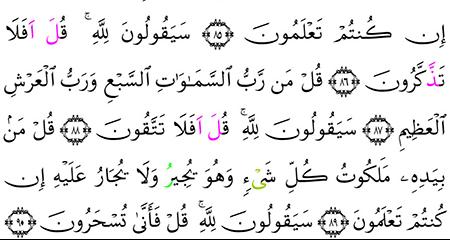 إِن كُنتُمْ تَعْلَمُونَ ۝٨٥ سَيَقُولُونَ لِلَّهِۚ قُلَ اَفَلَا
تَذَّكَّرُونَ ۝٨٦ قُلْ مَن رَّبُّ السَّمَٰوَٰتِ السَّبْعِ وَرَبُّ الْعَرْشِ
الْعَظِيمِ ۝٨٧ سَيَقُولُونَ لِلَّهِۚ قُلَ اَفَلَا تَتَّقُونَ ۝٨٨ قُلْ مَنۢ
بِيَدِهِۦ مَلَكُوتُ كُلِّ شَيْءٍ وَهُوَ يُجِيرُ وَلَا يُجَارُ عَلَيْهِ إِن
كُنتُمْ تَعْلَمُونَ ۝٨٩ سَيَقُولُونَ لِلَّهِۚ قُلْ فَأَنَّىٰ تُسْحَرُونَ ۝٩٠